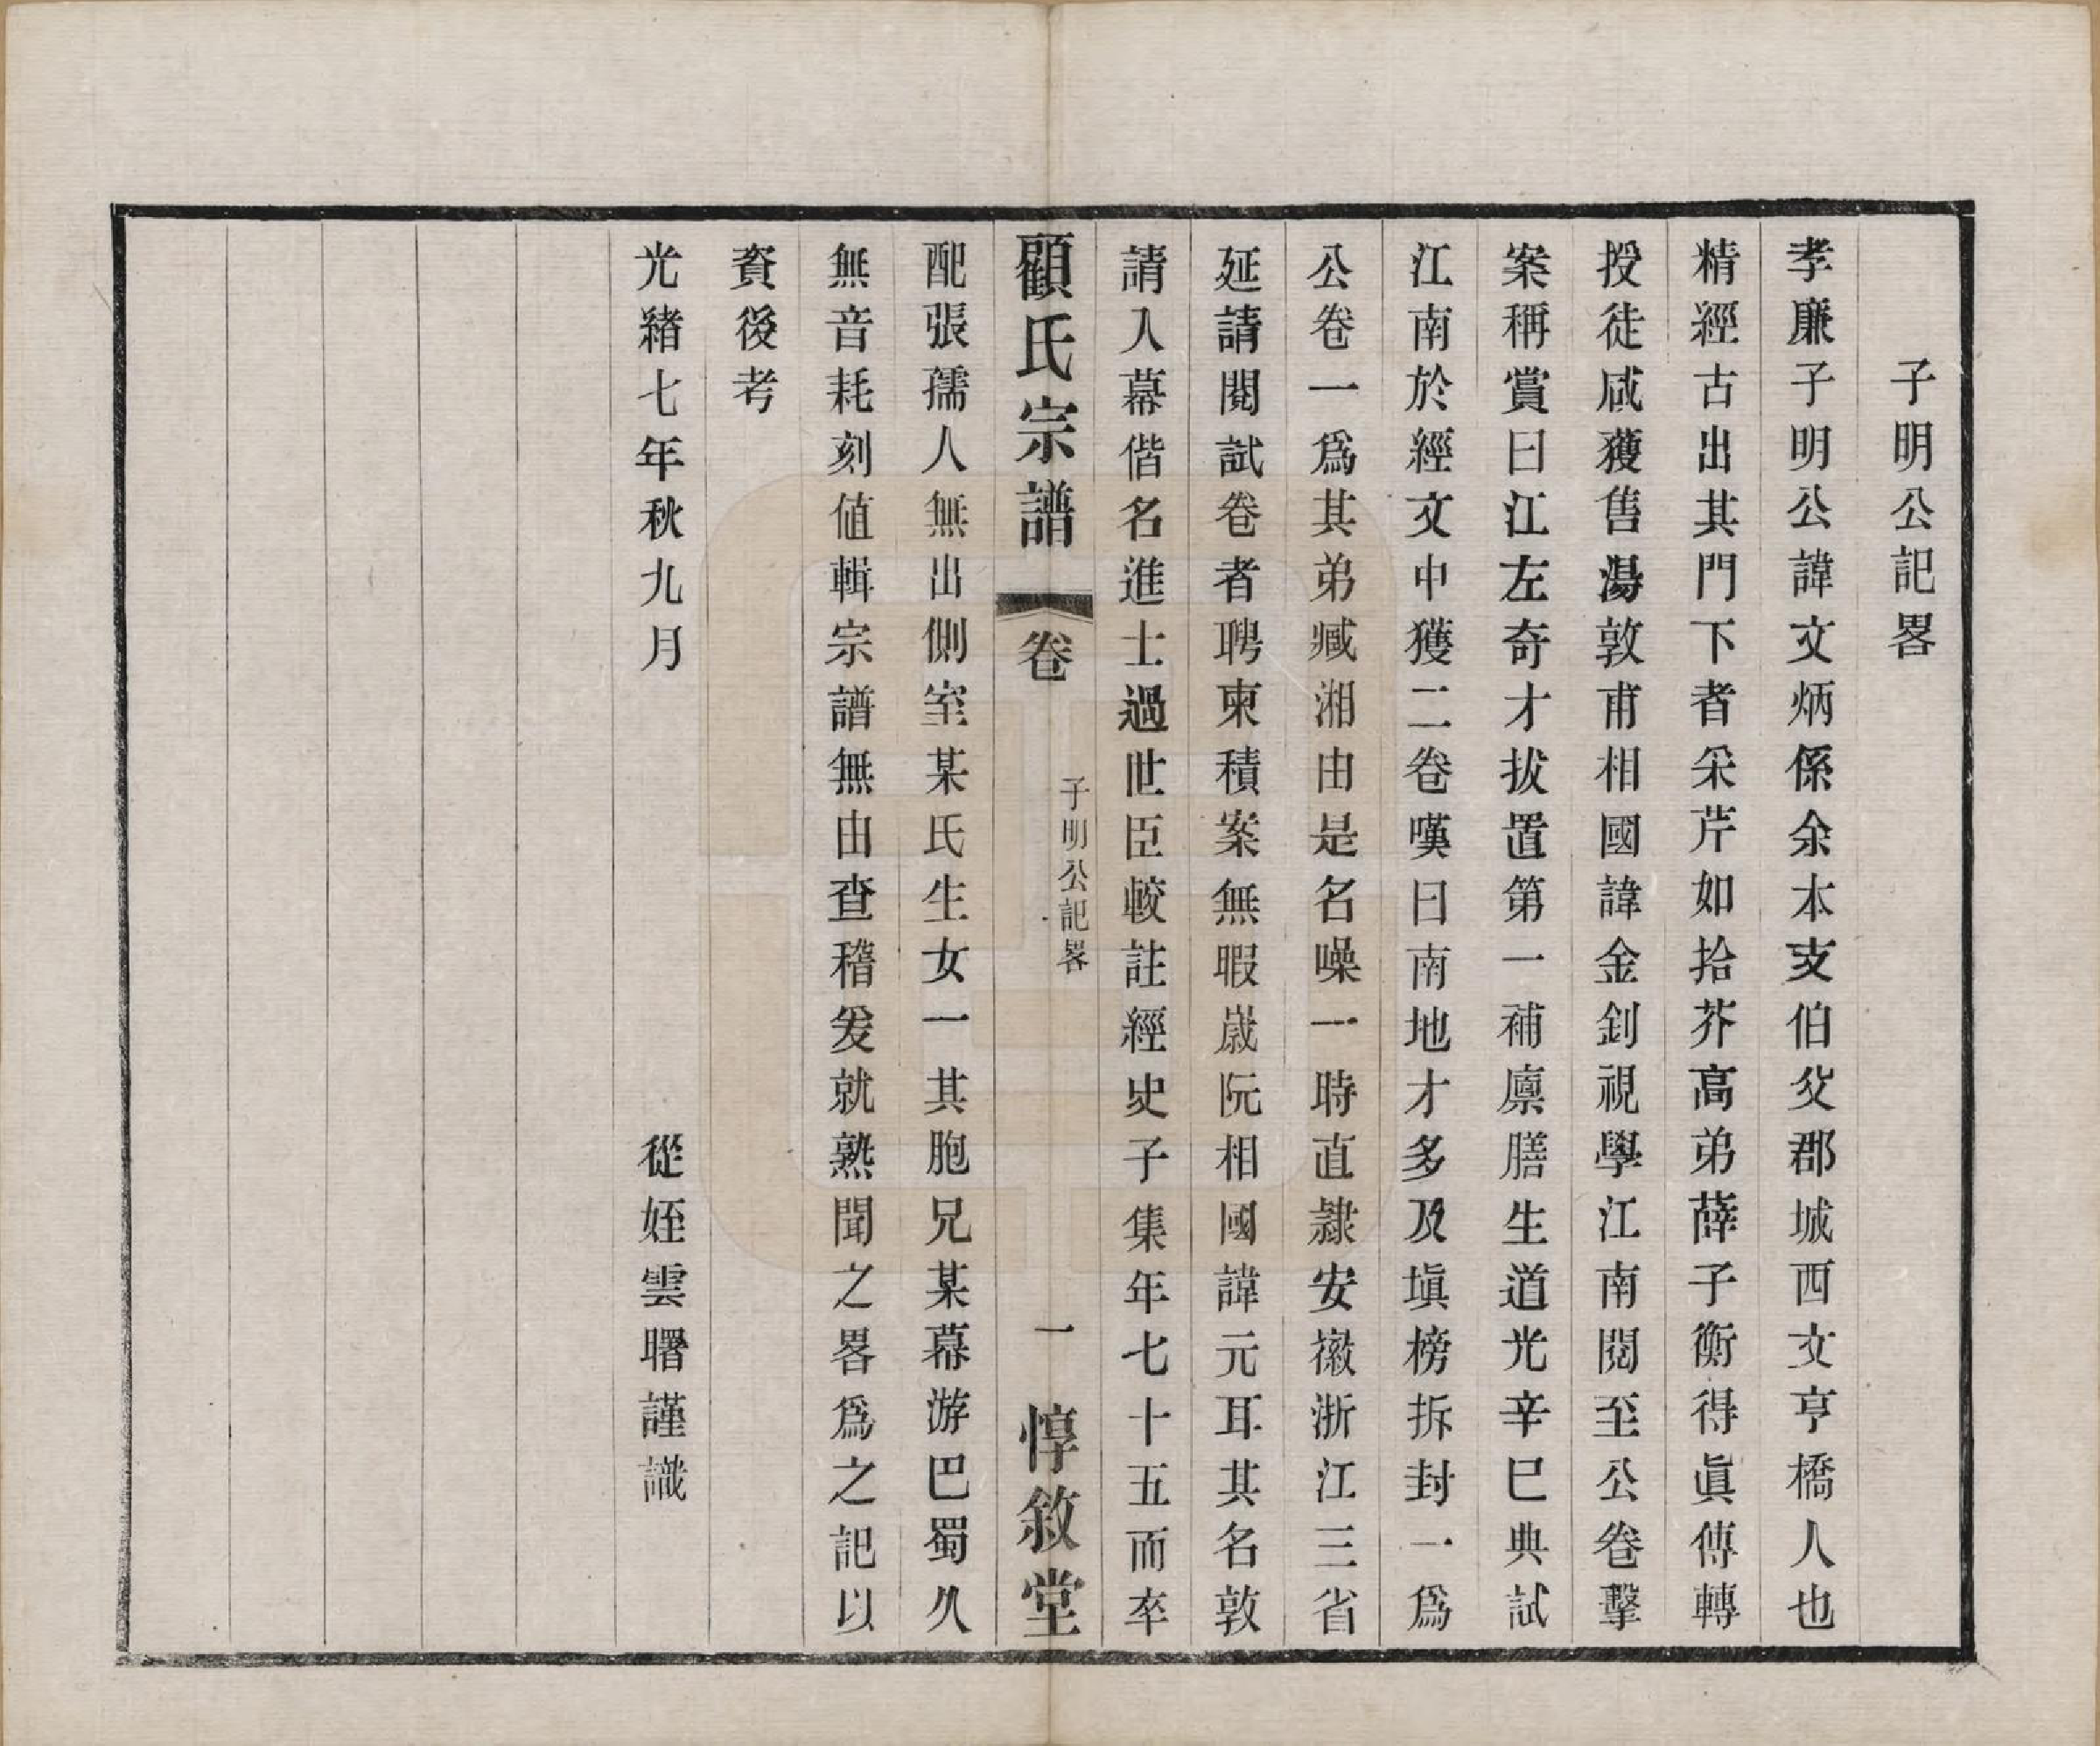 子明公記畧
孝廉子明公諱文炳係余本支伯父郡城西文亨橋人也
精經古出其門下者采芹如拾芥高弟薛子衡得眞傳轉
授徒咸獲售湯敦甫相國諱金釗視學江南閱至公卷擊
案稱賞曰江左奇才拔置第一補廪膳生道光辛巳典試
江南於經文中獲二卷嘆曰南地才多及塡榜拆封一爲
公卷一爲其弟臧湘由是名噪一時直隸安徽浙江三省
延請閱試卷者聘柬積案無暇嵗阮相國諱元耳其名敦
請入幕偕名進士過世臣較註經史子集年七十五而卒
顧氏宗譜 卷 子明公記畧 一 惇敘堂
配張孺人無出側室某氏生女一其胞兄某幕游巴蜀久
無音耗刻値輯宗譜無由查稽爰就熟聞之畧爲之記以
資後考
光緒七年秋九月 從姪雲曙謹識